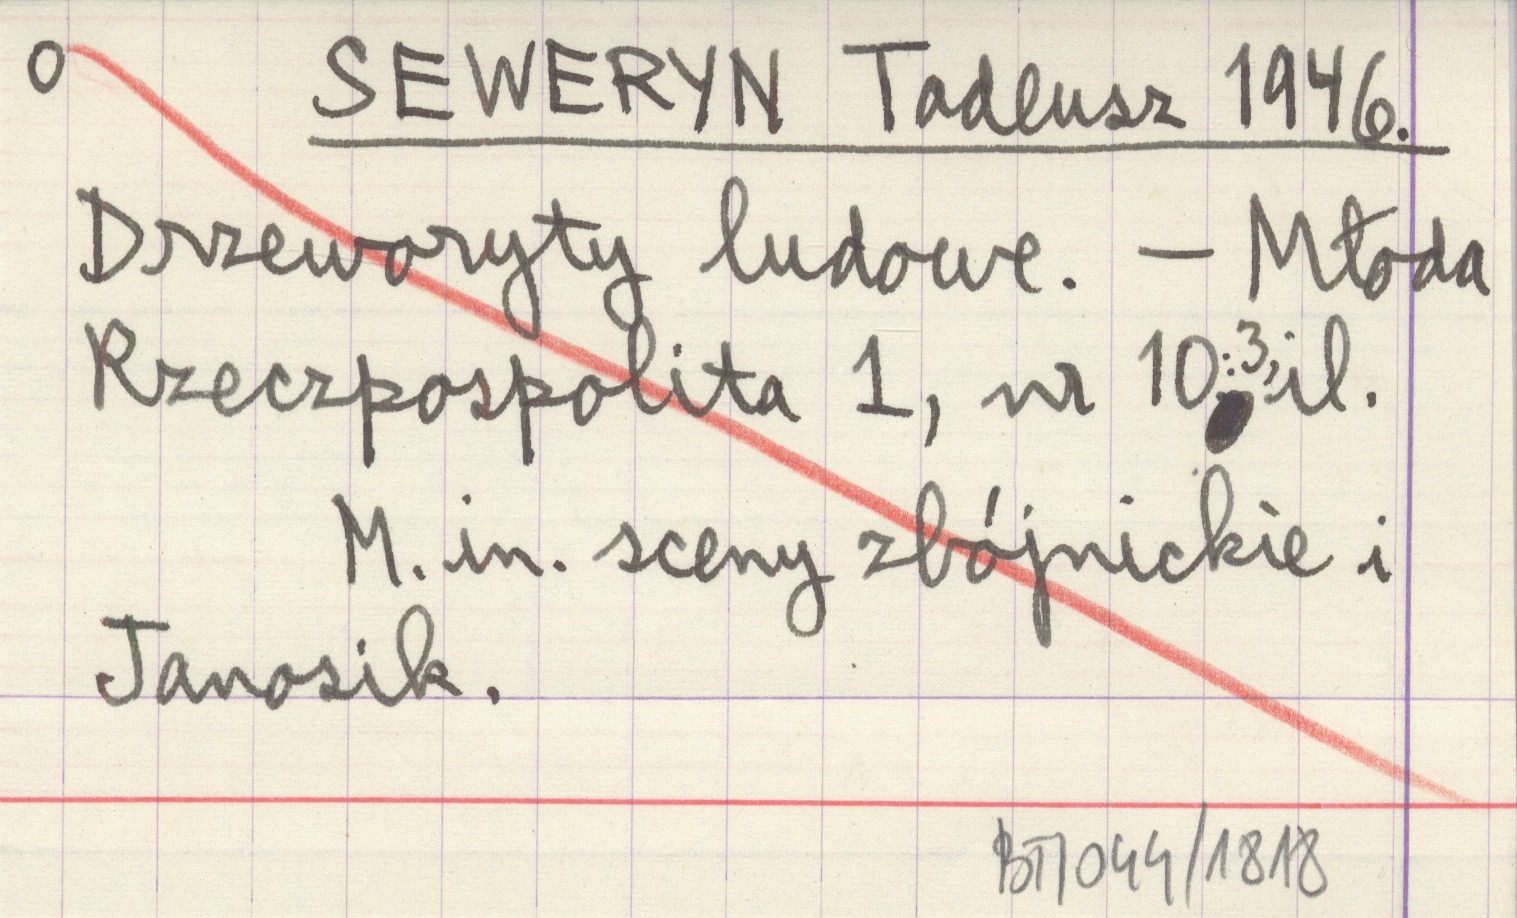 O SEWERYN Tadeusz 1946.
Drzeworyty ludowe. — Młoda
Rzeczpospolita 1, nr 10:3, il.
M. in. sceny zbójnickie i
Janosik.
BTP044/1818